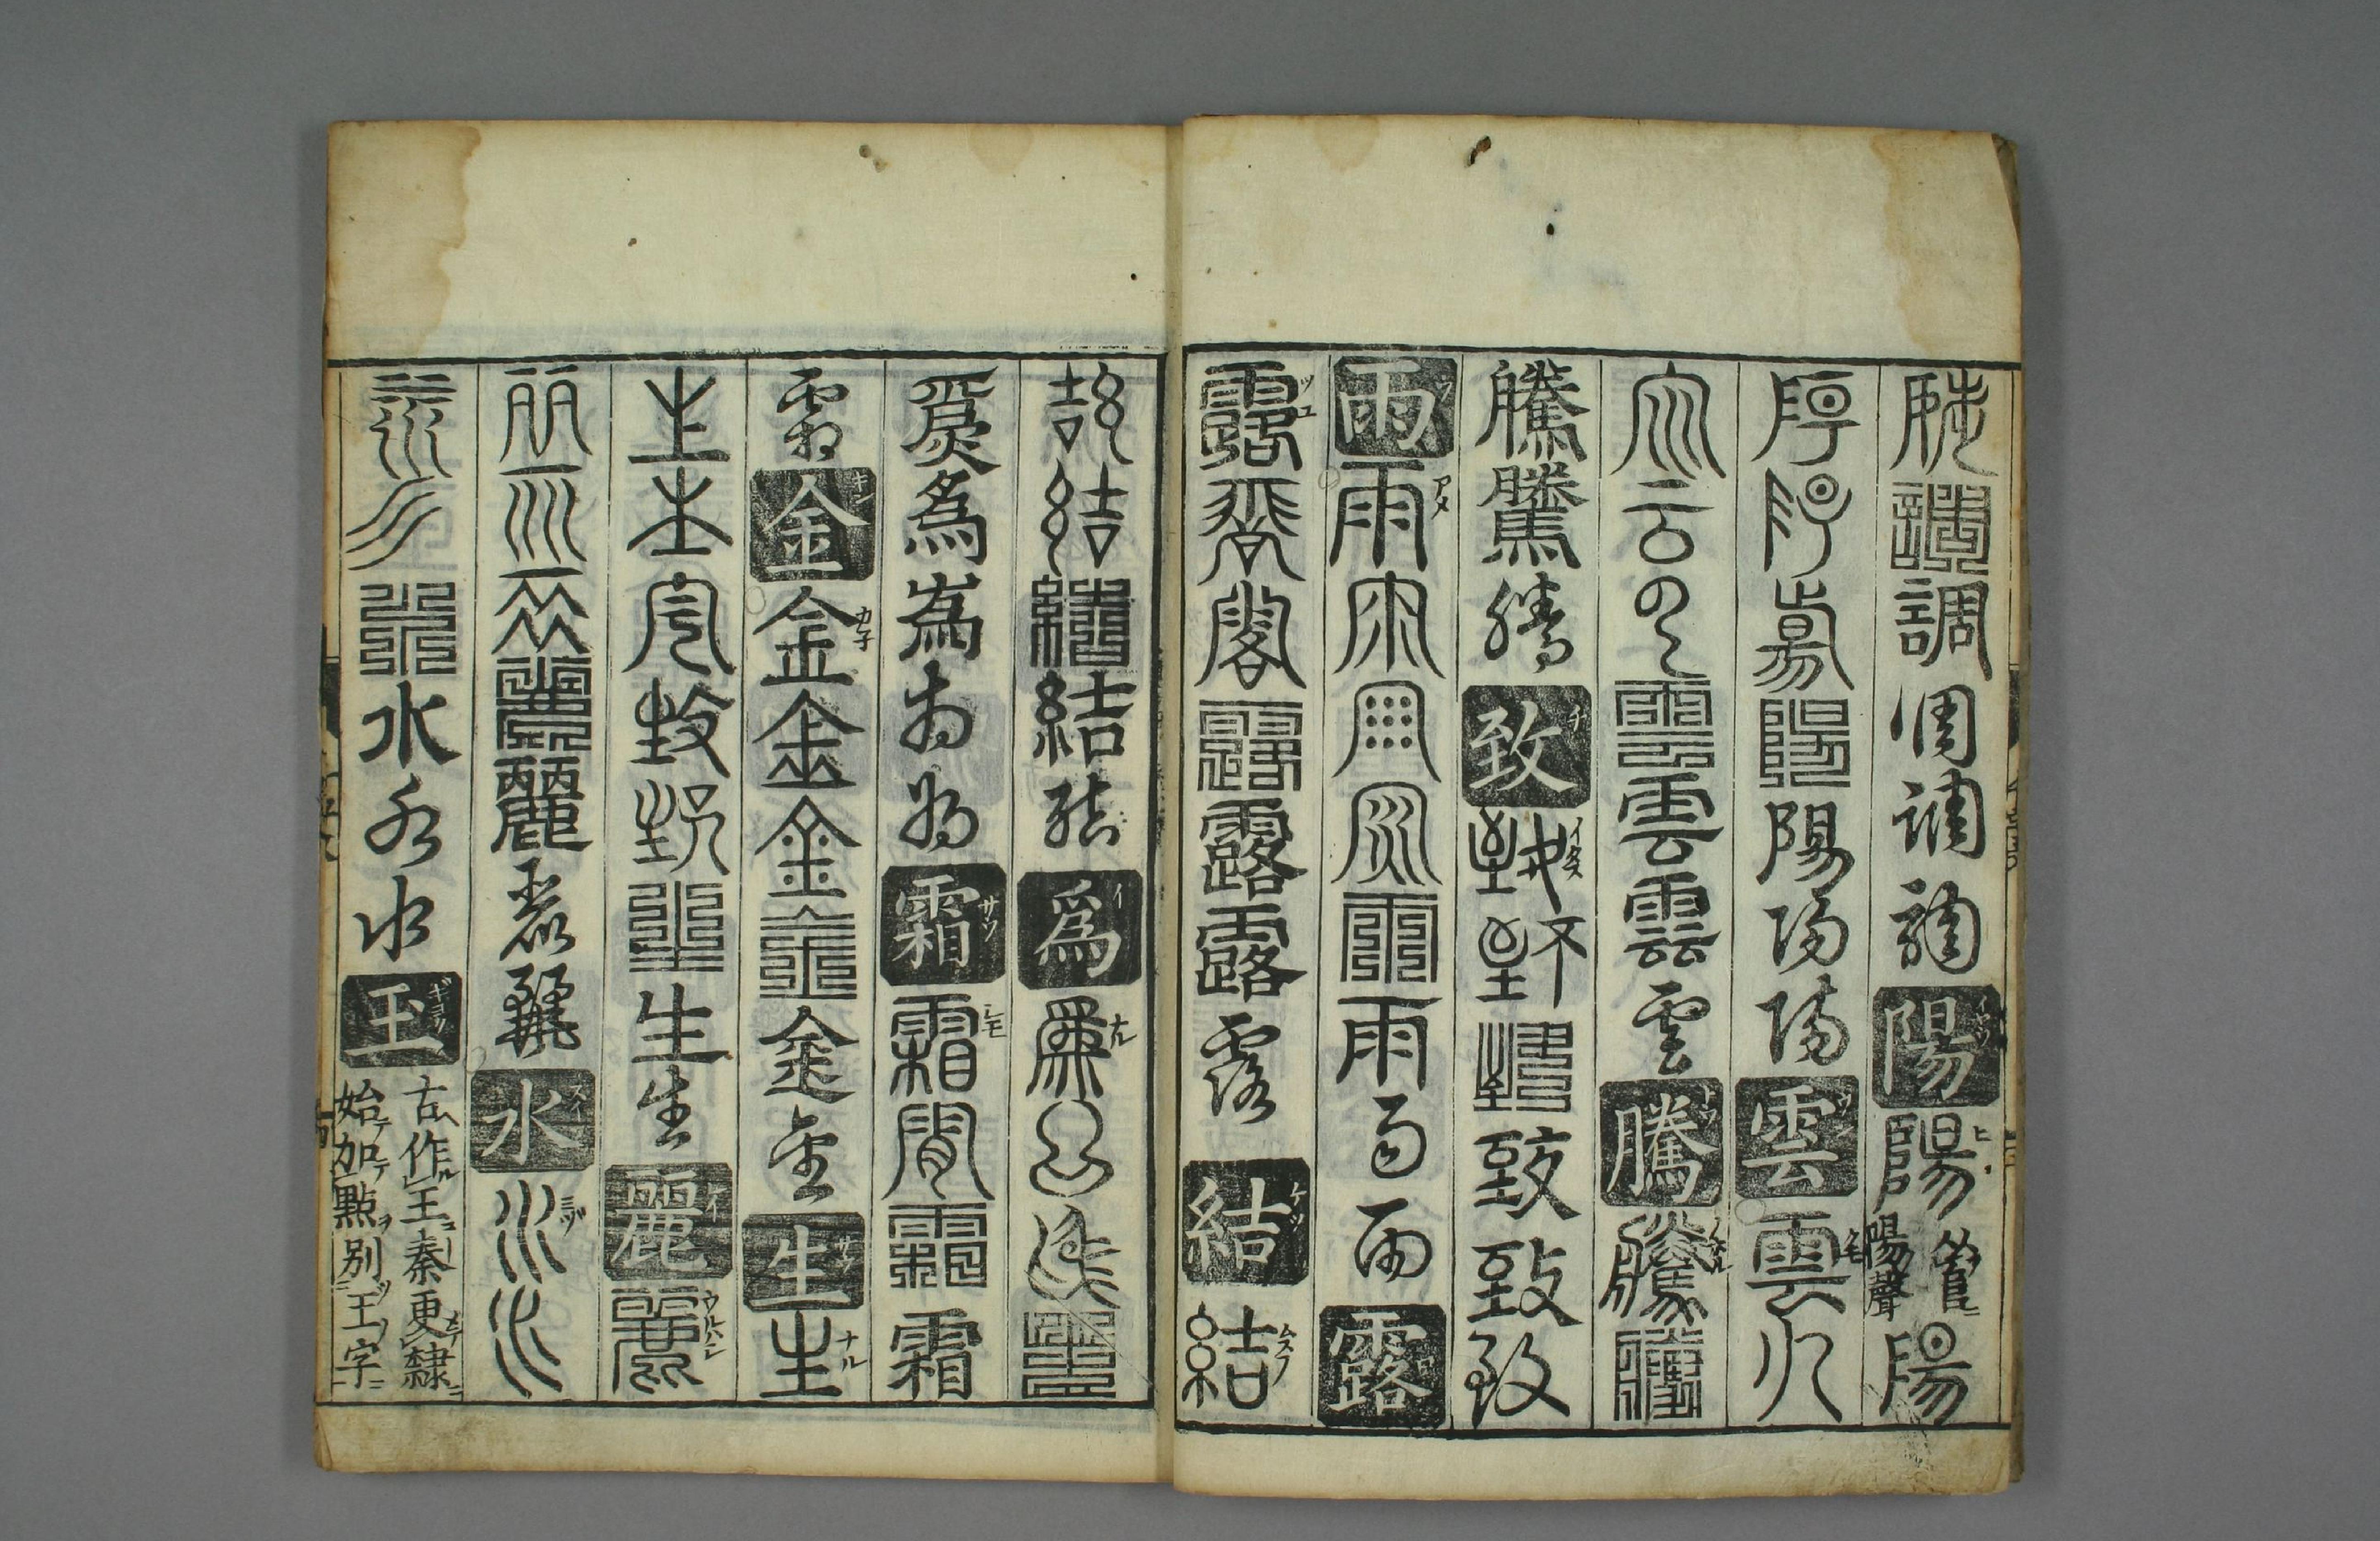 調調調調調調陽陽陽聲陽
陽陽陽陽陽陽陽雲雲雲
雲云雲雲雲雲雲騰騰騰
騰騰騰致致致致致致致
雨雨雨雨雨雨雨雨雨露
露露露露露露露結結
結結結結結爲爲爲爲爲
爲爲爲爲爲霜霜霜霜霜
霜金金金金金金金生生
生生生生生生生生麗麗
麗麗麗麗麗麗麗水水水
水水水水水水玉
古作王秦更隸
始加點別王字